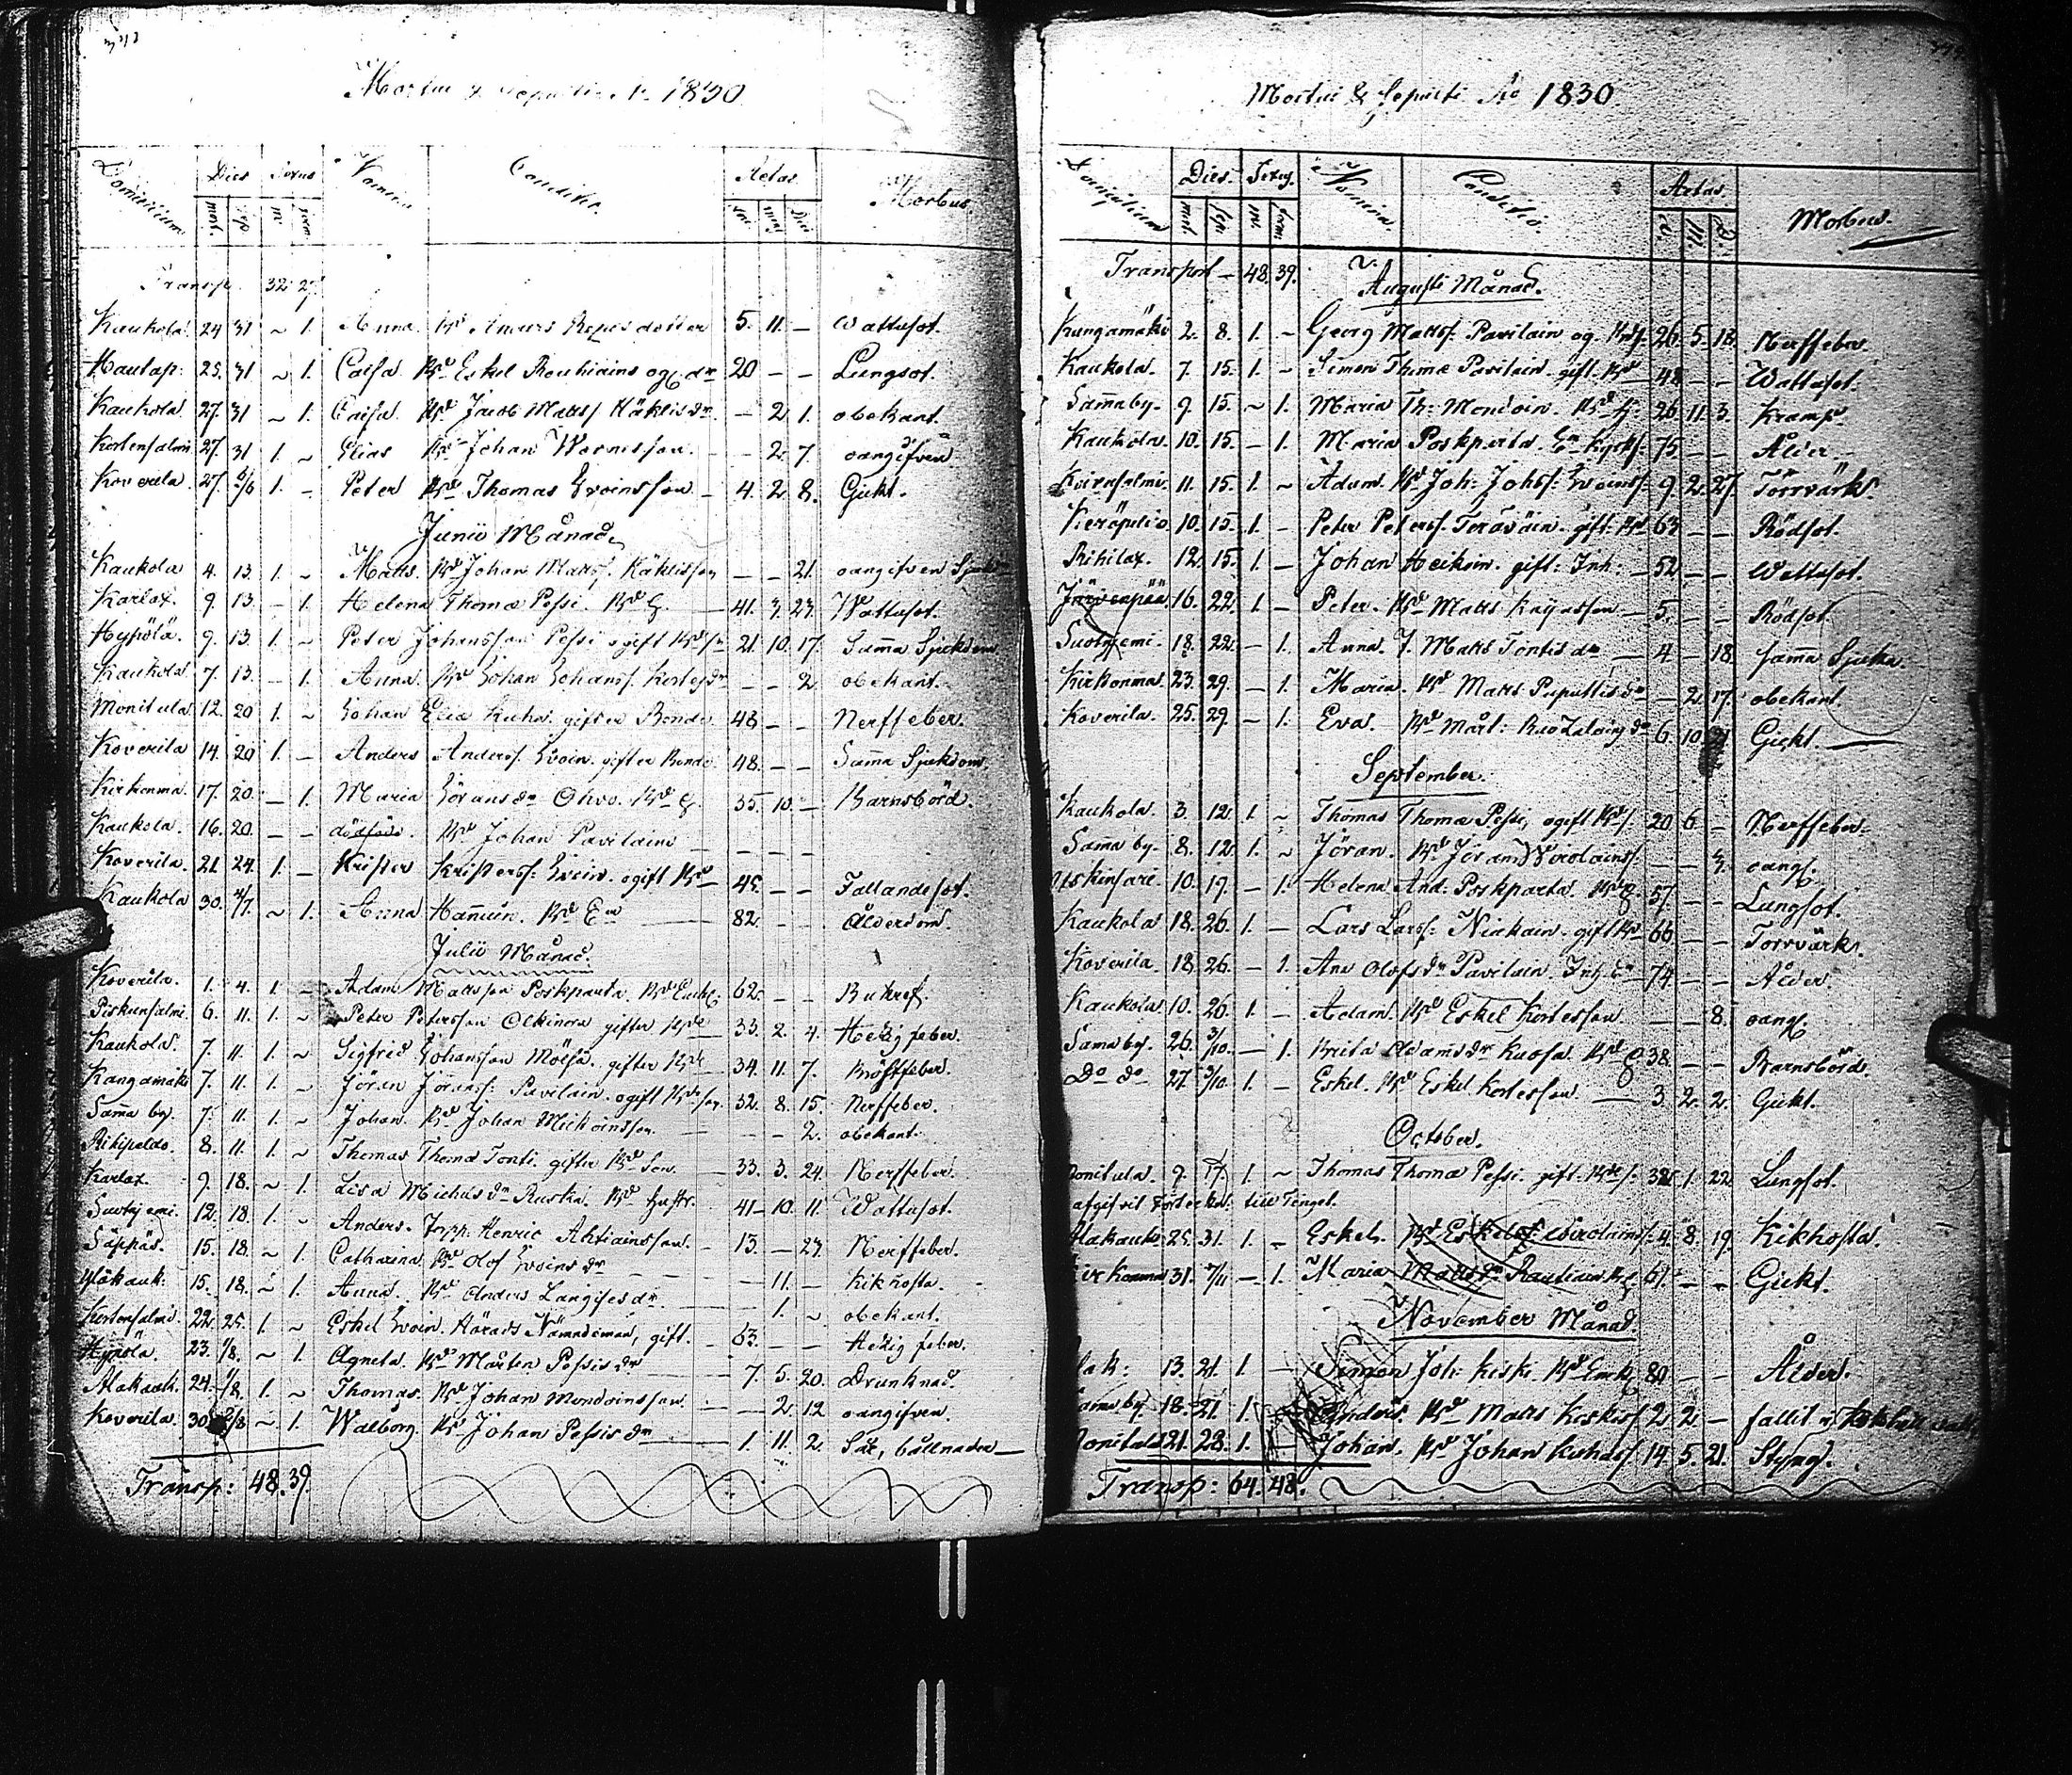 Mortui & Sepulti Ao 1830
Domicilium Dies Sexus Nomina Conditio Aetas Morbus
mort. sep. m. fem. ann. mens. Dies
Transp. 32 27
Kaukola. 24 31 ~ 1. Anna Bd Anders Repos dotter 5. 11. — Wattusot.
Kautap: 25. 31 ~ 1. Caisa Bd Eskel Rouhiains ogf. dr 20 — — Lungsot.
Kaukola 27. 31 ~ 1. Caisa. Bd Jacob Matts Käkis dr. — 2. 1. obekant.
Kortensalmi 27. 31 1. ~ Elias Bd Johan Wornisson. — 2. 7. oangifven
Koverila. 27. 6/6 1. — Peter Bd Thomas Evoinsson — 4. 2. 8. Gickt.
Junii Månad.
Kaukola 4. 13. 1. ~ Matts. Bd Johan Matts. Käkisson — — 21. oangifven
Karlax. 9. 13. — 1. Helena Thomæ Pessi. Bd H. 41. 3. 23. Wattusot.
Hypölä. 9. 13 1. ~ Peter Johansson Pessi ogift Bd sn 21. 10. 17. Samma Sjukdom
Kaukola. 7. 13. — 1. Anna. Bd Johan Johanss. Kortes dr — — 2. obekant.
Monitula 12. 20 1. ~ Johan Eliæ Kuha. gifter Bonde. 48 — — Nerffeber.
Koverila 14. 20 1. — Anders Anderss. Evoin. gifter Bonde. 48. — — Samma Sjukdom.
Kirkonma. 17. 20. — 1. Maria Görans dr Ohvo. Bd H. 35. 10. — Barnsbörd.
Kaukola. 16. 20. — — dödföd. Bd Johan Pavilains — — —
Koverila. 21. 24. 1. — Krister Kristerss: Evoin. ogift Bd 45. — — Fallandesot.
Kaukola 30. 4/7. ~ 1. Anna Hannuin. Bd Ea 82. — — Ålderdom.
Julii Månad.
Koverila. 1. 4. 1. — Adam Mattsson Poskparta. Bd Enkl. 62. — — Bukref.
Piskunsalmi. 6. 11. 1. ~ Peter Petersson Olkinora gifter Bd 33. 2. 4. Hetzig feber.
Kaukola. 7. 11. 1. ~ Sigfrid Johansson Mölsä. gifter Bd 34. 11. 7. Bröstfeber.
Kangamäki 7. 11. 1. ~ Jöran Jöranss: Pavilain. ogift Bd son. 32. 8. 15. Nerffeber.
Samma by. 7. 11. 1. ~ Johan. Bd Johan Mickoinsson. — — 2. obekant.
Rihipaldo. 8. 11. 1. ~ Thomas Thomæ Tonti. gifter Bd Son. 33. 3. 24. Nerffeber.
Karlax. 9. 18. ~ 1. Lisa Michels dr Ruska. Bd hustr. 41 — 10. 11. Wattusot.
Suotjemi. 12. 18. 1. ~ Anders. Torpp. Henric Ahtiainsson. 13. — 23. Nerffeber.
Säppäs. 15. 18. ~ 1. Catharina Bd Olof Evoins dr — 11. — Kikhosta.
Yläkauk: 15. 18. ~ 1. Anna. Bd Anders Langises dr. — 1. ~ obekant.
Kortensalmi. 22. 25. 1. ~ Eskel Evoin. Härads Nämndeman, gift. 63. — — Hetzig feber.
Hypölä. 23. 1/8. ~ 1. Agneta. Bd Mårten Pessis dr 7. 5. 20. Drunknad.
Alakauk. 24. 1/8. 1. ~ Thomas. Bd Johan Mondoinsson. — 2. 12 oangifven.
Koverila. 30 8/8 ~ 1. Walborg Bd Johan Pessis dr 1. 11. 2. Sår, bållnader
Transp: 48. 39.
Mortui & Sepulti Ao 1830.
Domicilium Dies. Sexus. Nomina. Conditio. Aetas. Morbus.
mort. sep. m. fem. A. M. D.
Transport — 48. 39. Augusti Månad.
Kangamäki 2. 8. 1. — Georg Matts: Pavilain og. Bd s. 26. 5. 13. Nerffeber.
Kaukola. 7. 15. 1. ~ Simon Thomæ Pavilain gift. Bd 48 — — Wattusot.
Samma by. 9. 15. ~ 1. Maria Th: Mondoin. Bd H: 26 11. 3. Kramp.
Kaukola. 10. 15. — 1. Maria Poskparta. 75. — — Ålder.
Koirnsalmi. 11. 15. 1. ~ Adam. Bd Joh: Johss: Evoins s. 9. 2. 27. Torrvärk.
Keräpelto. 10. 15. 1. — Peter Peterss. Teräväin. gift. Bd 63 — — Rödsot.
Rihilax. 12. 15. 1. — Johan Heikoin. gift: Inh: 52 — — Wattusot.
Järvenpää 16. 22. 1 — Peter. Bd Matts Käynässon — 5. — — Rödsot.
Suotjemi. 18. 22. — 1. Anna. J. Matts Tontis dr 4 — 18. samma Sjuka.
Kirkonma. 23. 29. — 1. Maria. Bd Matts Puputtis dr — 2. 17. obekant.
Koverila. 25. 29. — 1. Eva. Bd Mårt: dr 6. 10. 21. Gickt.
September.
Kaukola. 3. 12. 1. ~ Thomas Thomæ Pessi, ogift Bd s. 20 6. — Nerffeber.
Samma by. 8. 12. 1. ~ Jöran. Bd Jöran Wirolains s. — — 3. oangf.
10. 19. — 1. Helena And: Poskparta. Bd H. 57. — — Lungsot.
Kaukola 18. 26. 1. — Lars Larss: Niukain. gift Bd 66 — — Torrvärk.
Koverila. 18. 26. — 1. Ana Olofs dr Pavilain. Inh. Ea 74. — — Ålder.
Kaukola 10. 26 1. — Adam. Bd Eskel Kortesson — — 8. oangf.
Samma by. 26. 3/10. — 1. Brita Adams dr Kuosa. Bd H 38. — — Barnsbörd.
Do do 27. 3/10. 1. — Eskel. Bd Eskel Kortesson. — 3. 2. 2. Gickt.
October.
Monitula. 9. 17. 1. ~ Thomas Thomæ Pessi. gift. Bd s: 32. 1. 22. Lungsot.
afgifvit Förteckn: till Tengel.
Alakauk: 25. 31. 1. — Eskel. Bd Eskel Wirolains s. 4. 8. 19. Kikhosta.
Kirkonma 31. 7/11 — 1. Maria Matts dr Rautiain Bd H. 61. — — Gickt.
November Månad.
13. 21. 1. — Simon Joh: Kiski Bd Enkl. 80 — — Ålder.
Samma by. 18. 21. 1. Anders. Bd Matts Kiskis s. 2. 2 — fallit i
Monitula 21. 28. 1. — Johan. Bd Johan Kuhas s. 14. 5. 21. Styng.
Transp: 64. 48.